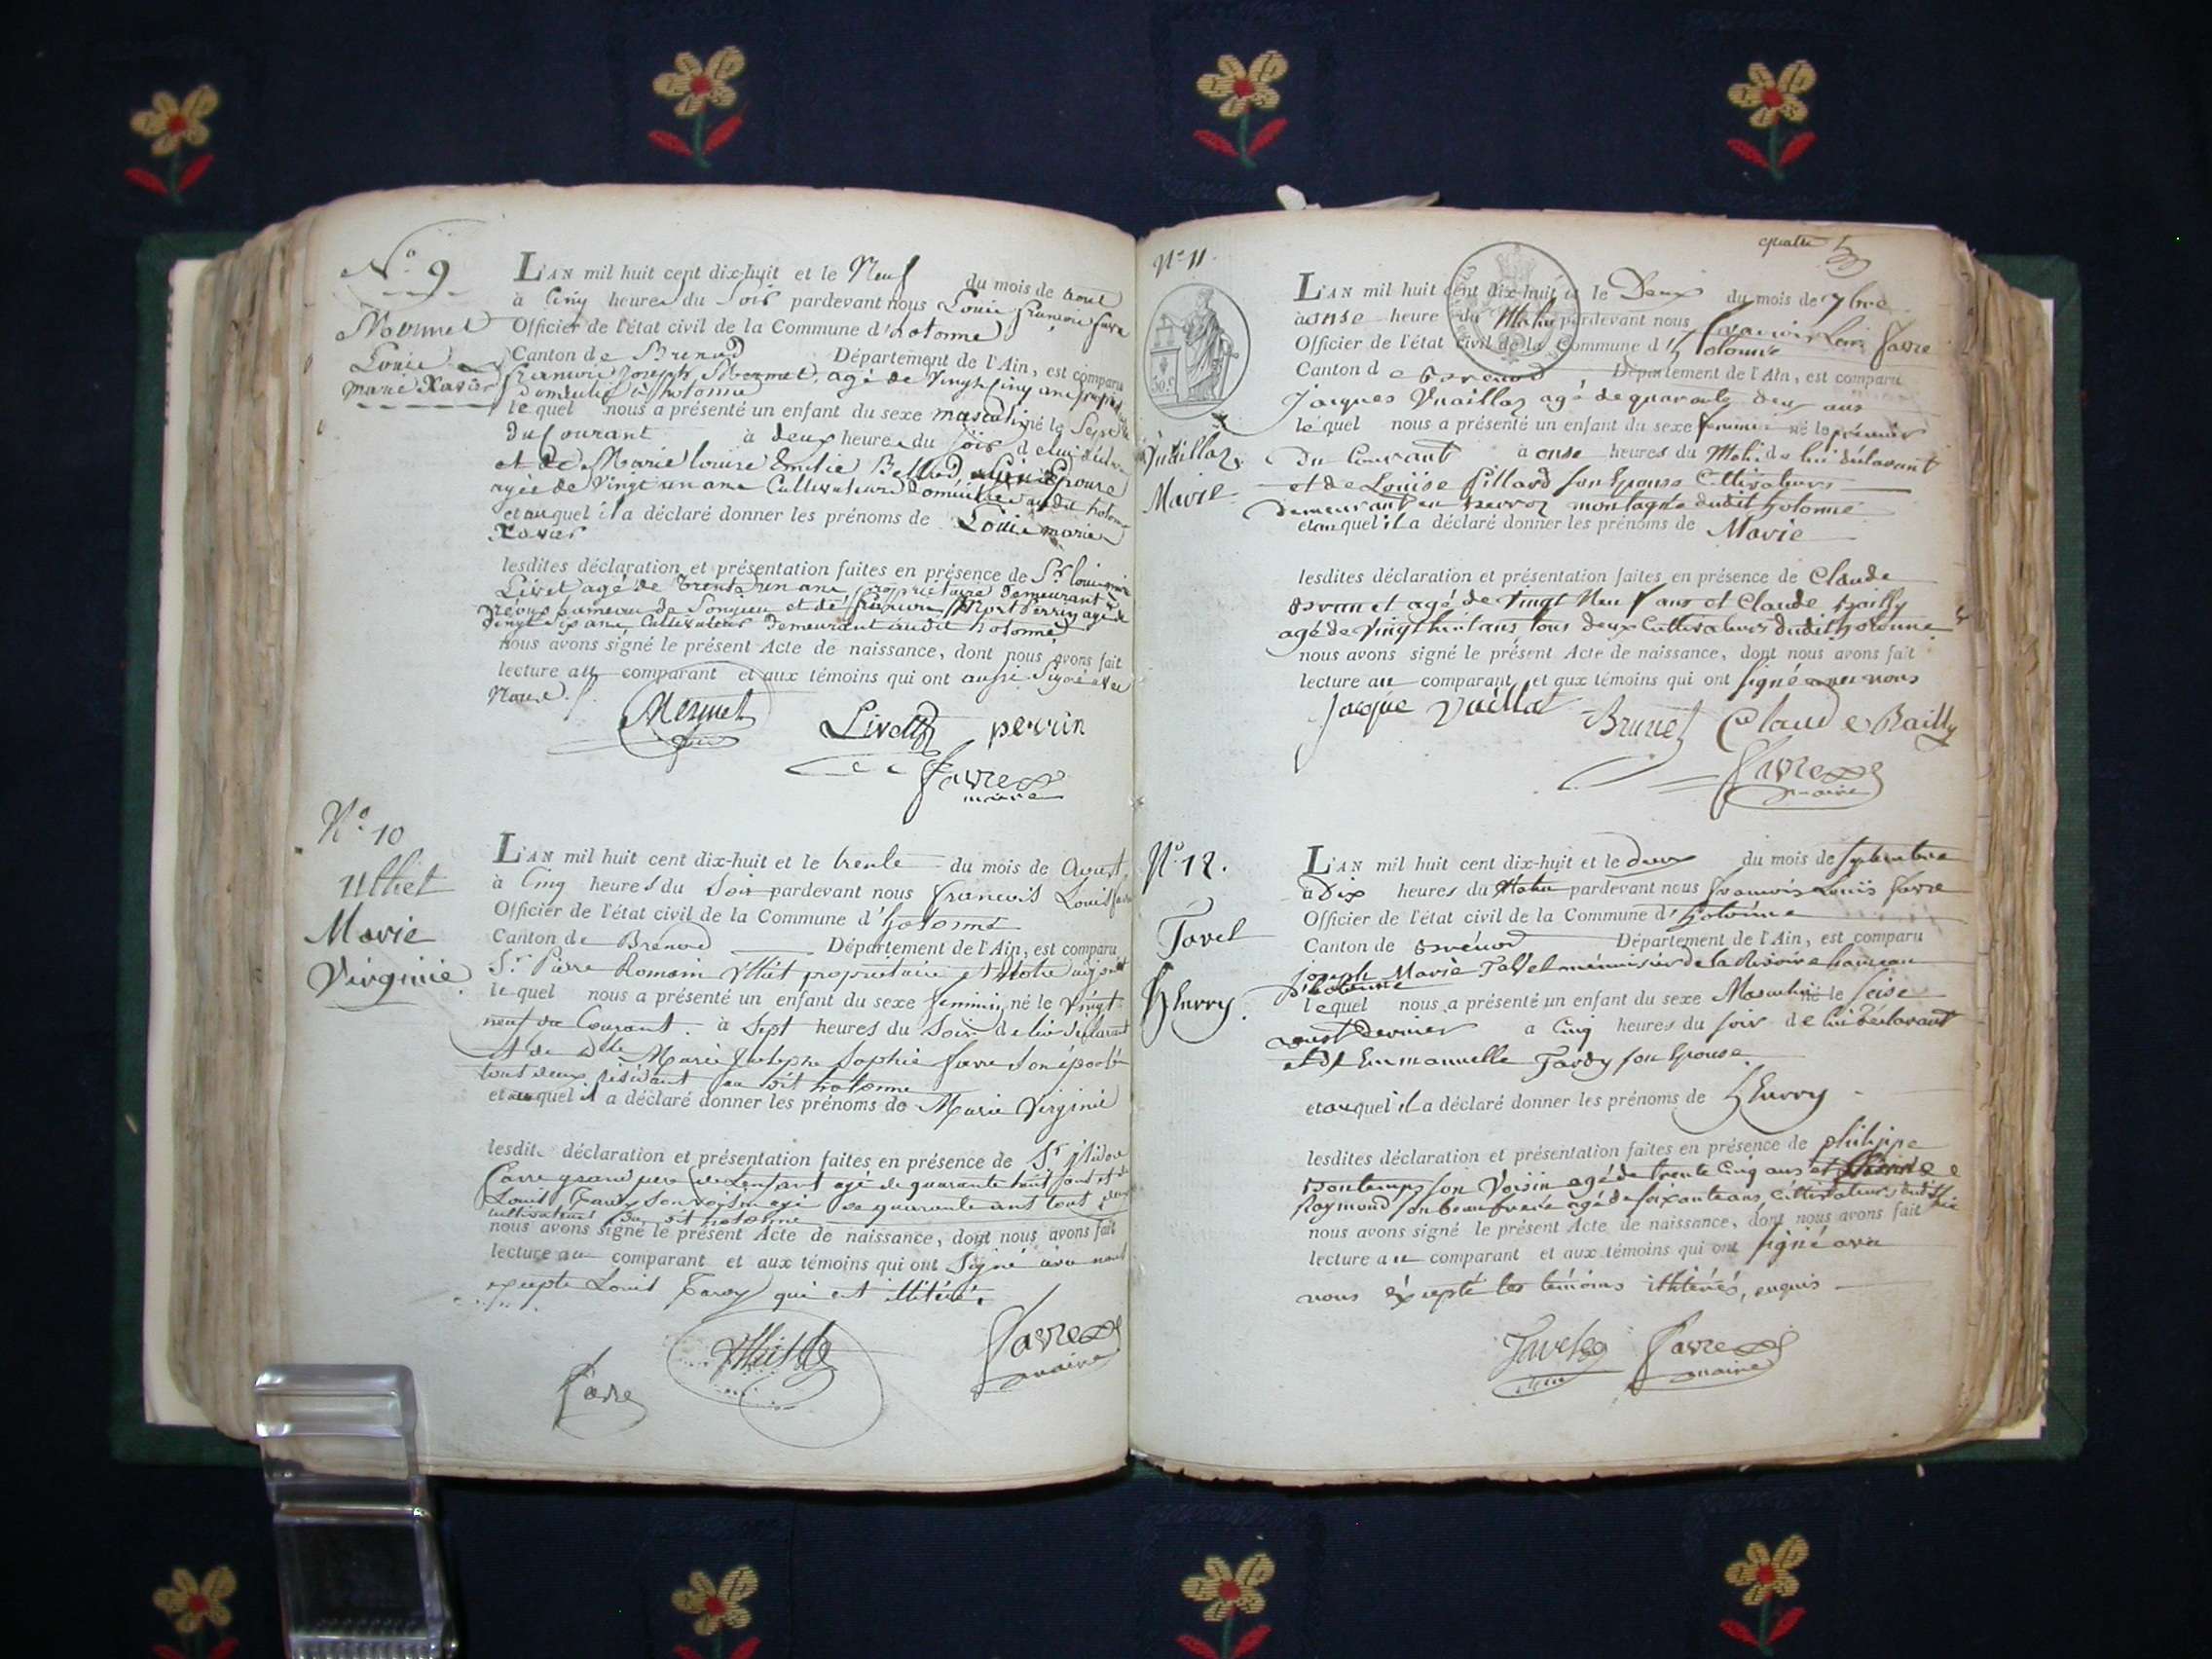 N.° 9
Louis
Marie Xavier
L'AN mil huit cent dix-huit et le Neuf du mois de aout
à Cinq heures du Soir pardevant nous Louis françois favre
Officier de l'état civil de la Commune d'hotonne
Canton de Brenod Département de l'Ain, est comparu
françois Joseph agé de vingt cinq ans
Domicilié à hotonne
lequel nous a présenté un enfant du sexe masculin né le Sept
du Courant à deux heures du soir de lui déclarant
et de Marie Louise Emilie son Epouse
agée de vingt un ans Cultivateurs Domiciliés audit hotonne
et auquel il a déclaré donner les prénoms de Louis marie
Xavier
lesdites déclaration et présentation faites en présence de Sr. Louis
Livet agé de trente un ans, propriétaire demeurant à
hameau de Songieu et de françois perrin agé de
vingt six ans Cultivateur demeurant audit hotonne
nous avons signé le présent Acte de naissance, dont nous avons fait
lecture au comparant et aux témoins qui ont aussi Signé avec
Nous.
Livet perrin
favre
maire
N.° 10
Marie
Virginie
L'AN mil huit cent dix-huit et le trente du mois de Aoust
à Cinq heures du Soir pardevant nous francois Louis favre
Officier de l'état civil de la Commune d'hotonne
Canton de Brenod Département de l'Ain, est comparu
Sr. Pierre Romain propriétaire et
lequel nous a présenté un enfant du sexe feminin né le vingt
neuf du Courant à Sept heures du Soir de lui déclarant
et de dlle Marie Josephe Sophie favre son épouse
tout deux résidant au dit hotonne
et auquel il a déclaré donner les prénoms de Marie Virginie
lesdites déclaration et présentation faites en présence de Sr
favre grand pere de l'enfant agé de quarante huit ans et de
Louis Tardy son voisin agé de quarante ans tout deux
cultivateurs du dit hotonne
nous avons signé le présent Acte de naissance, dont nous avons fait
lecture au comparant et aux témoins qui ont Signé avec nous
excepté Louis Tardy qui est illitéré.
favre
favre
maire
quatre
N.° 11
Vuaillaz
Marie
L'AN mil huit cent dix-huit et le Deux du mois de 7bre
à onse heure du Matin pardevant nous françois Louis favre
Officier de l'état civil de la Commune d'hotonne
Canton de Brénod Département de l'Ain, est comparu
Jacques Vuaillaz agé de quarante deux ans
lequel nous a présenté un enfant du sexe feminin né le premier
du Courant à onse heures du Matin de lui déclarant
et de Louise Pillard son Epouse Cultivateurs
demeurant en montagne dudit hotonne
et auquel il a déclaré donner les prénoms de Marie
lesdites déclaration et présentation faites en présence de Claude
Brunet agé de vingt Neuf ans et Claude Bailly
agé de vingt huit ans tous deux Cultivateurs dudit hotonne
nous avons signé le présent Acte de naissance, dont nous avons fait
lecture au comparant et aux témoins qui ont signé avec nous
Jacque Vuillat Brunet Claude Bailly
favre
maire
N.° 12.
Tavel
hurry.
L'AN mil huit cent dix-huit et le deux du mois de septembre
à Dix heures du Matin pardevant nous françois Louis favre
Officier de l'état civil de la Commune d'hotonne
Canton de Brénod Département de l'Ain, est comparu
joseph Marie Tavel ménuisier de la hameau
d'hotonne
lequel nous a présenté un enfant du sexe Masculin né le seise
aoust dernier à Cinq heures du soir de lui déclarant
et de Emmanuelle Tardy son Epouse
et auquel il a déclaré donner les prénoms de hurry
lesdites déclaration et présentation faites en présence de philippe
Bontemps son Voisin agé de trente Cinq ans et
Raymond son beau frere agé de soixante ans, cultivateurs dudit lieu
nous avons signé le présent Acte de naissance, dont nous avons fait
lecture au comparant et aux témoins qui ont signé avec
nous éxcepté les témoins illitérés, enquis
Tavel favre
maire